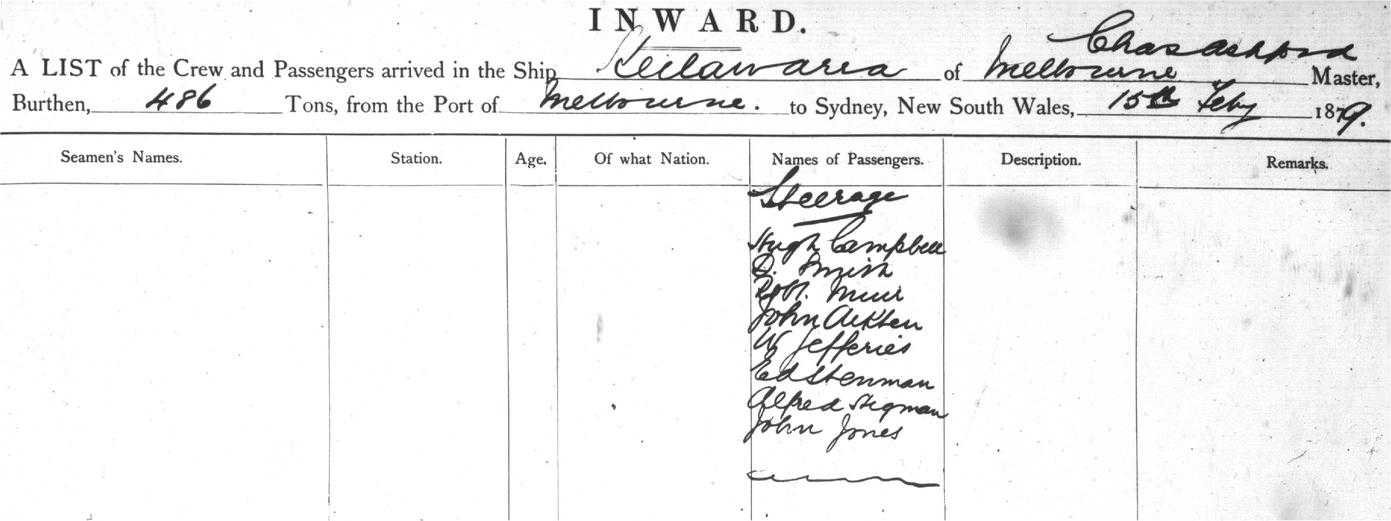 INWARD.
Chas Ashford
A LIST of the Crew and Passengers arrived in the Ship Keilawarra of Melbourne Master,
Burthen, 486 Tons, from the Port of Melbourne. to Sydney, New South Wales, 15th Feby 1879.
Seamen's Names. Station. Age. Of what Nation. Names of Passengers. Description. Remarks.
Steerage
Hugh Campbell
D. Smith
Robt. Muir
John Aitken
W Jefferies
Ed Stenman
Alfred Stegman
John Jones